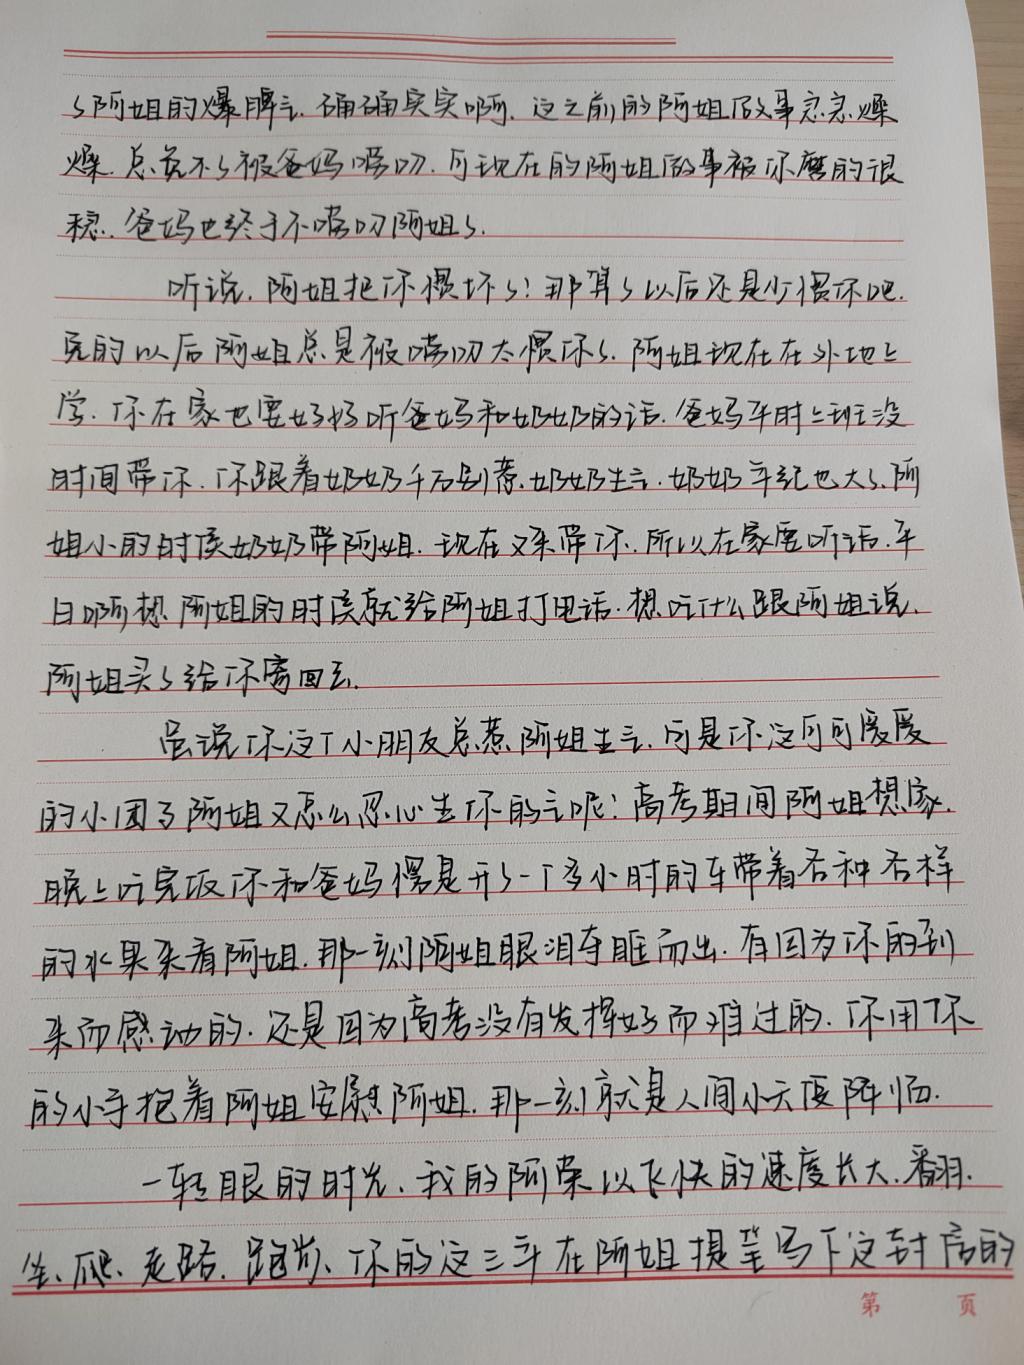 了阿姐的爆脾气.确确实实啊.这之前的阿姐做事忿忿燥
燥.总免不了被爸妈唠叨.可现在的阿姐做事被你磨的很
稳.爸妈也终于不唠叨阿姐了.
听说.阿姐把你惯坏了?那算了以后还是少惯你吧.
免的以后阿姐总是被唠叨太惯你了.阿姐现在在外地上
学.你在家也要好好听爸妈和奶奶的话.爸妈平时上班没
时间带你.你跟着奶奶千万别惹.奶奶生气.奶奶年纪也大了.阿
姐小的时候奶奶带阿姐.现在又来带你.所以在家要听话.平
日啊想阿姐的时候就给阿姐打电话.想吃什么跟阿姐说.
阿姐买了给你寄回去.
虽说你这个小朋友总惹阿姐生气.可是你这可可爱爱
的小团子阿姐又怎么忍心生你的气呢?高考期间阿姐想家.
晚上吃完饭你和爸妈愣是开了一个多小时的车带着各种各样
的水果来看阿姐.那一刻阿姐眼泪夺眶而出.有因为你的到
来而感动的.还是因为高考没有发挥好而难过的.你用你
的小手抱着阿姐安慰阿姐.那一刻就是人间小天使降临.
一转眼的时光.我的阿荣以飞快的速度长大.翻羽.
坐、爬、走路.跑岁、你的这三年在阿姐提笔写下这封信的
第 页